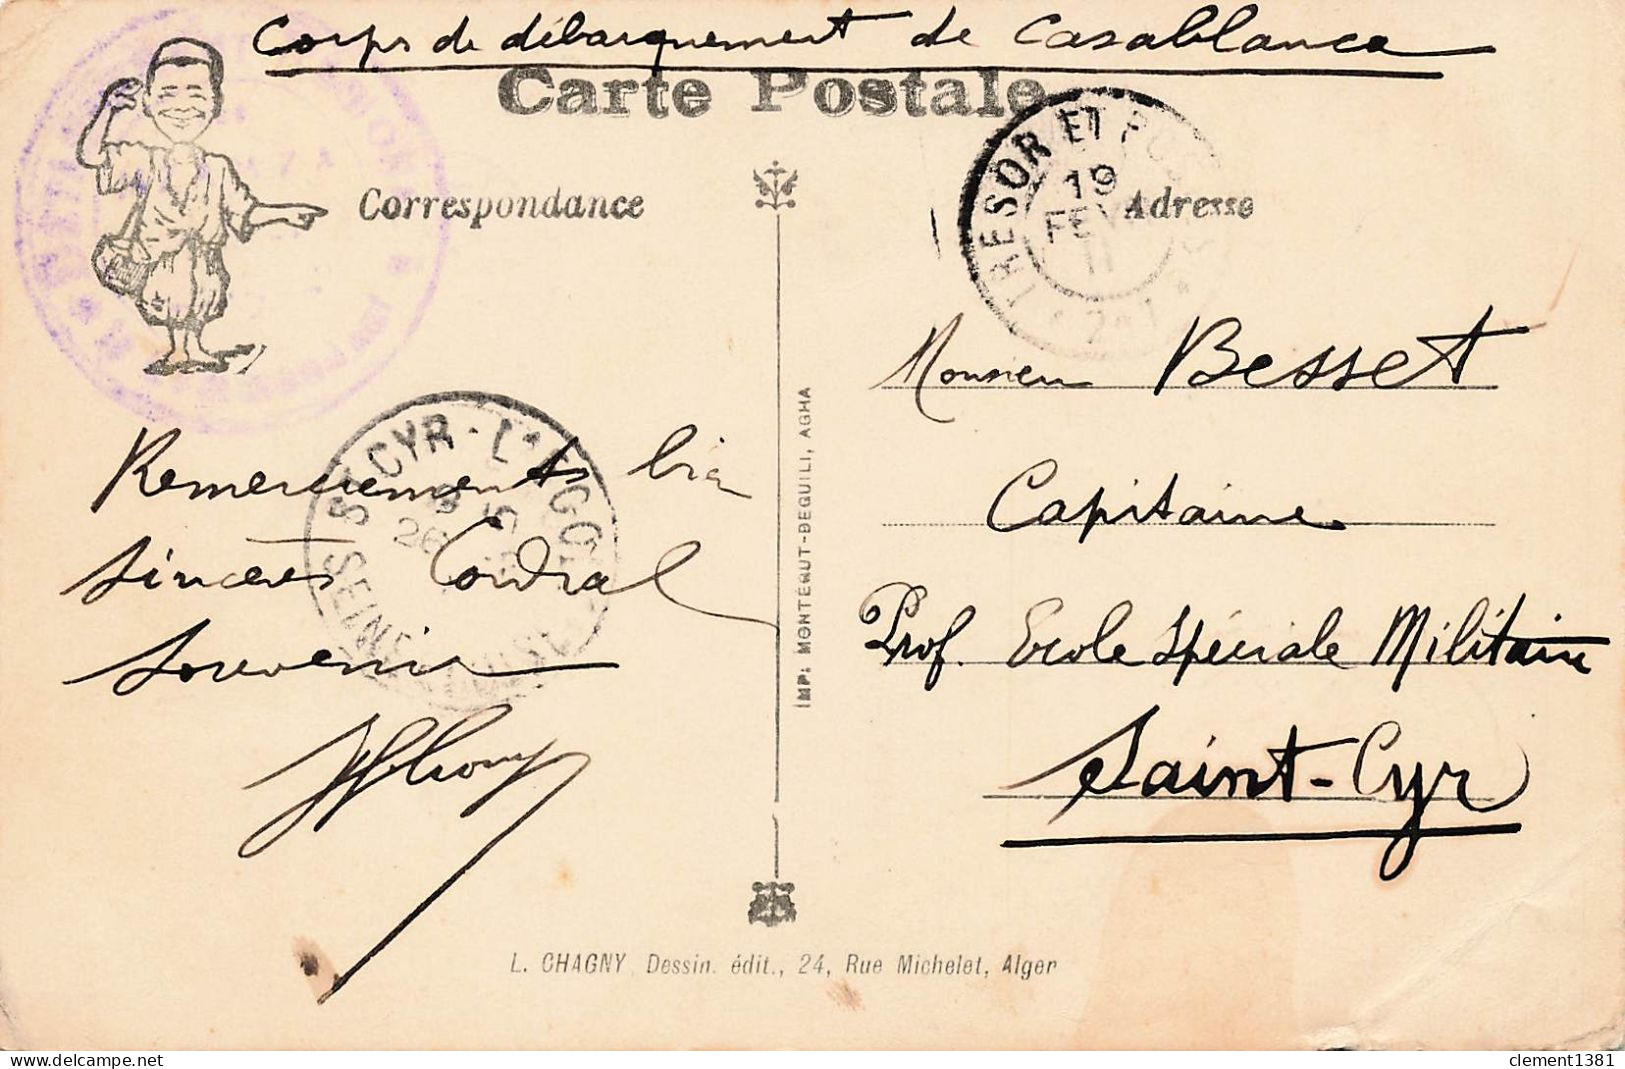 Corps de débarquement de Casablanca
Carte Postale
Correspondance
Adresse
TRESOR ET POSTES
19
FEV
11
Monsieur Besset
Capitaine
Prof. Ecole Spéciale Militaire
Saint-Cyr
ST CYR-L'ECOLE
26
SEINE
Remerciements bien
sincères Cordial
Souvenir
IMP: MONTÉGUT-DEGUILI, AGHA
L. CHAGNY, Dessin. édit., 24, Rue Michelet, Alger
clement1381